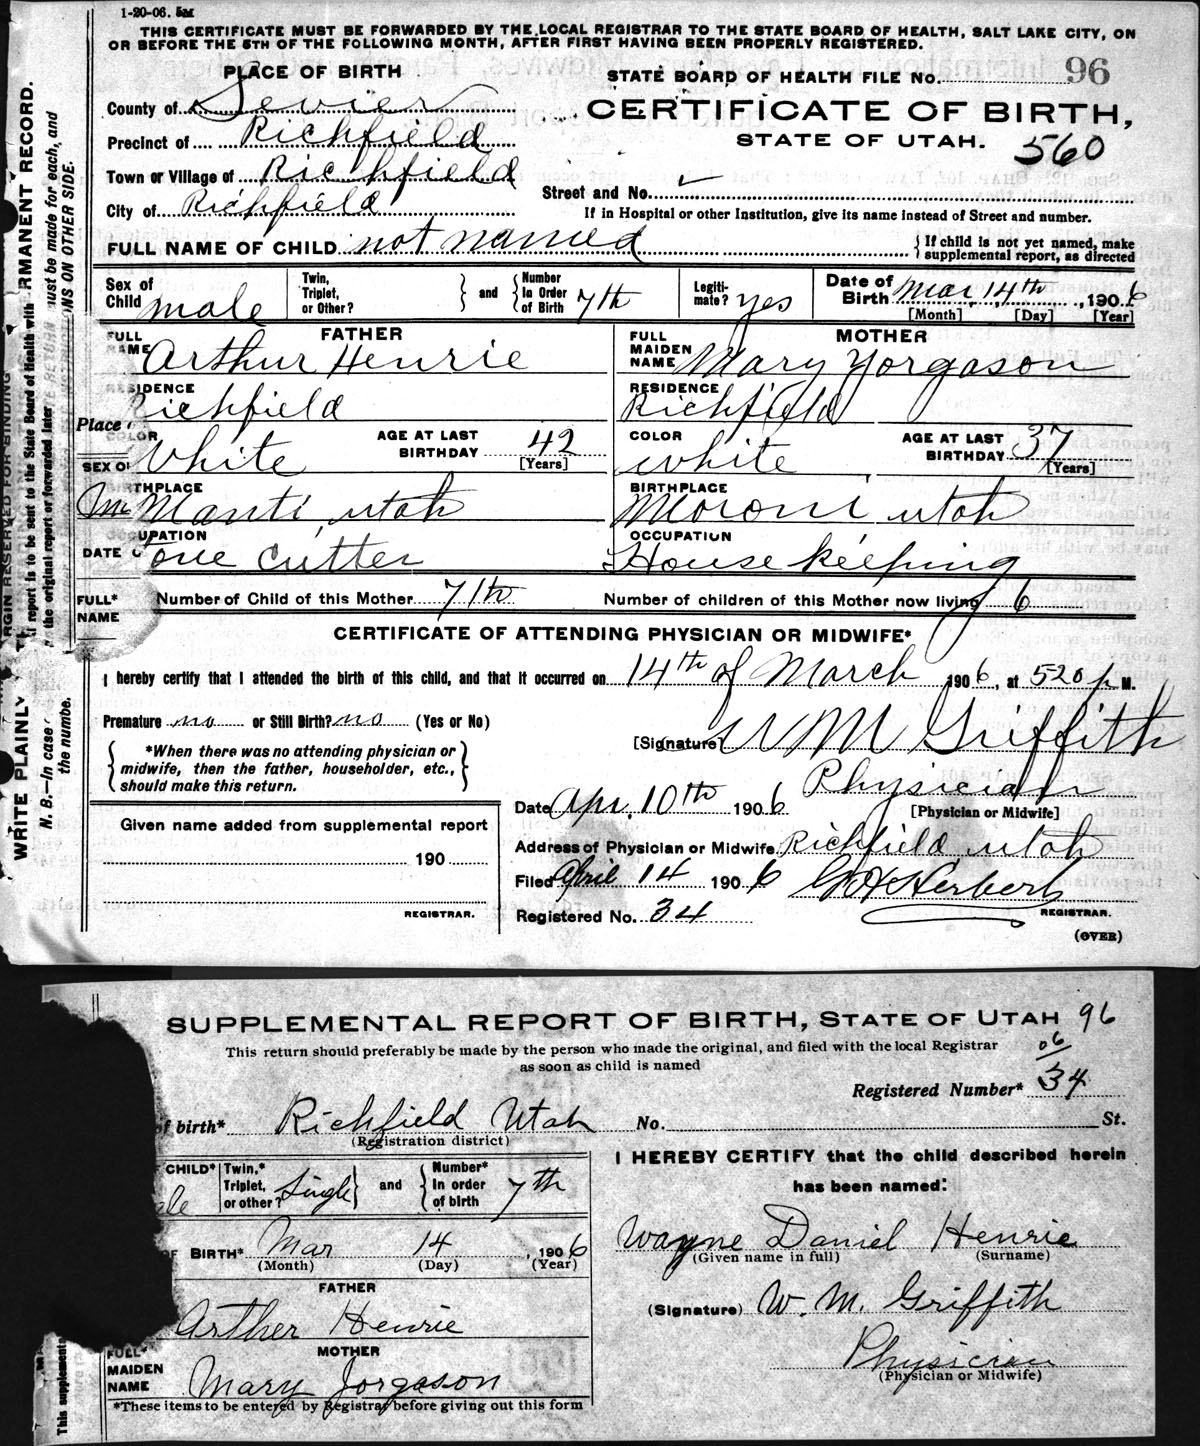 1-20-06. 5M
THIS CERTIFICATE MUST BE FORWARDED BY THE LOCAL REGISTRAR TO THE STATE BOARD OF HEALTH, SALT LAKE CITY, ON
OR BEFORE THE 5TH OF THE FOLLOWING MONTH, AFTER FIRST HAVING BEEN PROPERLY REGISTERED.
PLACE OF BIRTH
STATE BOARD OF HEALTH FILE NO. 96
County of Sevier
CERTIFICATE OF BIRTH,
Precinct of Richfield
STATE OF UTAH. 560
Town or Village of Richfield
Street and No.
City of Richfield
If in Hospital or other Institution, give its name instead of Street and number.
FULL NAME OF CHILD not named
{ If child is not yet named, make supplemental report, as directed
Sex of Child male
Twin, Triplet, or Other? } and { Number In Order of Birth 7th
Legitimate? yes
Date of Birth Mar. 14th, 1906
[Month] [Day] [Year]
FATHER
MOTHER
FULL NAME Arthur Henrie
FULL MAIDEN NAME Mary Yorgason
RESIDENCE Richfield
RESIDENCE Richfield
Place
COLOR White
AGE AT LAST BIRTHDAY 42 [Years]
COLOR white
AGE AT LAST BIRTHDAY 37 [Years]
SEX O
BIRTHPLACE Manti, utah
BIRTHPLACE Moroni utah
OCCUPATION tone cutter
OCCUPATION House keeping
DATE O
FULL* NAME
Number of Child of this Mother 7th
Number of children of this Mother now living 6
CERTIFICATE OF ATTENDING PHYSICIAN OR MIDWIFE*
I hereby certify that I attended the birth of this child, and that it occurred on 14th of March 1906, at 520 p M.
Premature no or Still Birth? no (Yes or No)
[Signature] W M Griffith
{ *When there was no attending physician or midwife, then the father, householder, etc., should make this return. }
Physician
[Physician or Midwife]
Date Apr. 10th 1906
Given name added from supplemental report
Address of Physician or Midwife Richfield utah
190
Filed April 14 1906
Herbert
REGISTRAR.
REGISTRAR.
Registered No. 34
(OVER)
WRITE PLAINLY
RMANENT RECORD.
N. B.—In case
must be made for each, and
the numbe.
ONS ON OTHER SIDE.
SUPPLEMENTAL REPORT OF BIRTH, STATE OF UTAH 96
This return should preferably be made by the person who made the original, and filed with the local Registrar
as soon as child is named
06
Registered Number* 34
of birth* Richfield Utah
No. St.
(Registration district)
I HEREBY CERTIFY that the child described herein
has been named:
CHILD* ale
Twin,* Triplet, or other? Single } and { Number* In order of birth 7th
Wayne Daniel Henrie
(Given name in full) (Surname)
OF BIRTH* Mar 14, 1906
(Month) (Day) (Year)
FATHER
(Signature) W. M. Griffith
Arther Henrie
MOTHER
Physician
(Physician or Midwife)
FULL* MAIDEN NAME Mary Jorgason
*These items to be entered by Registrar before giving out this form
This supplementa